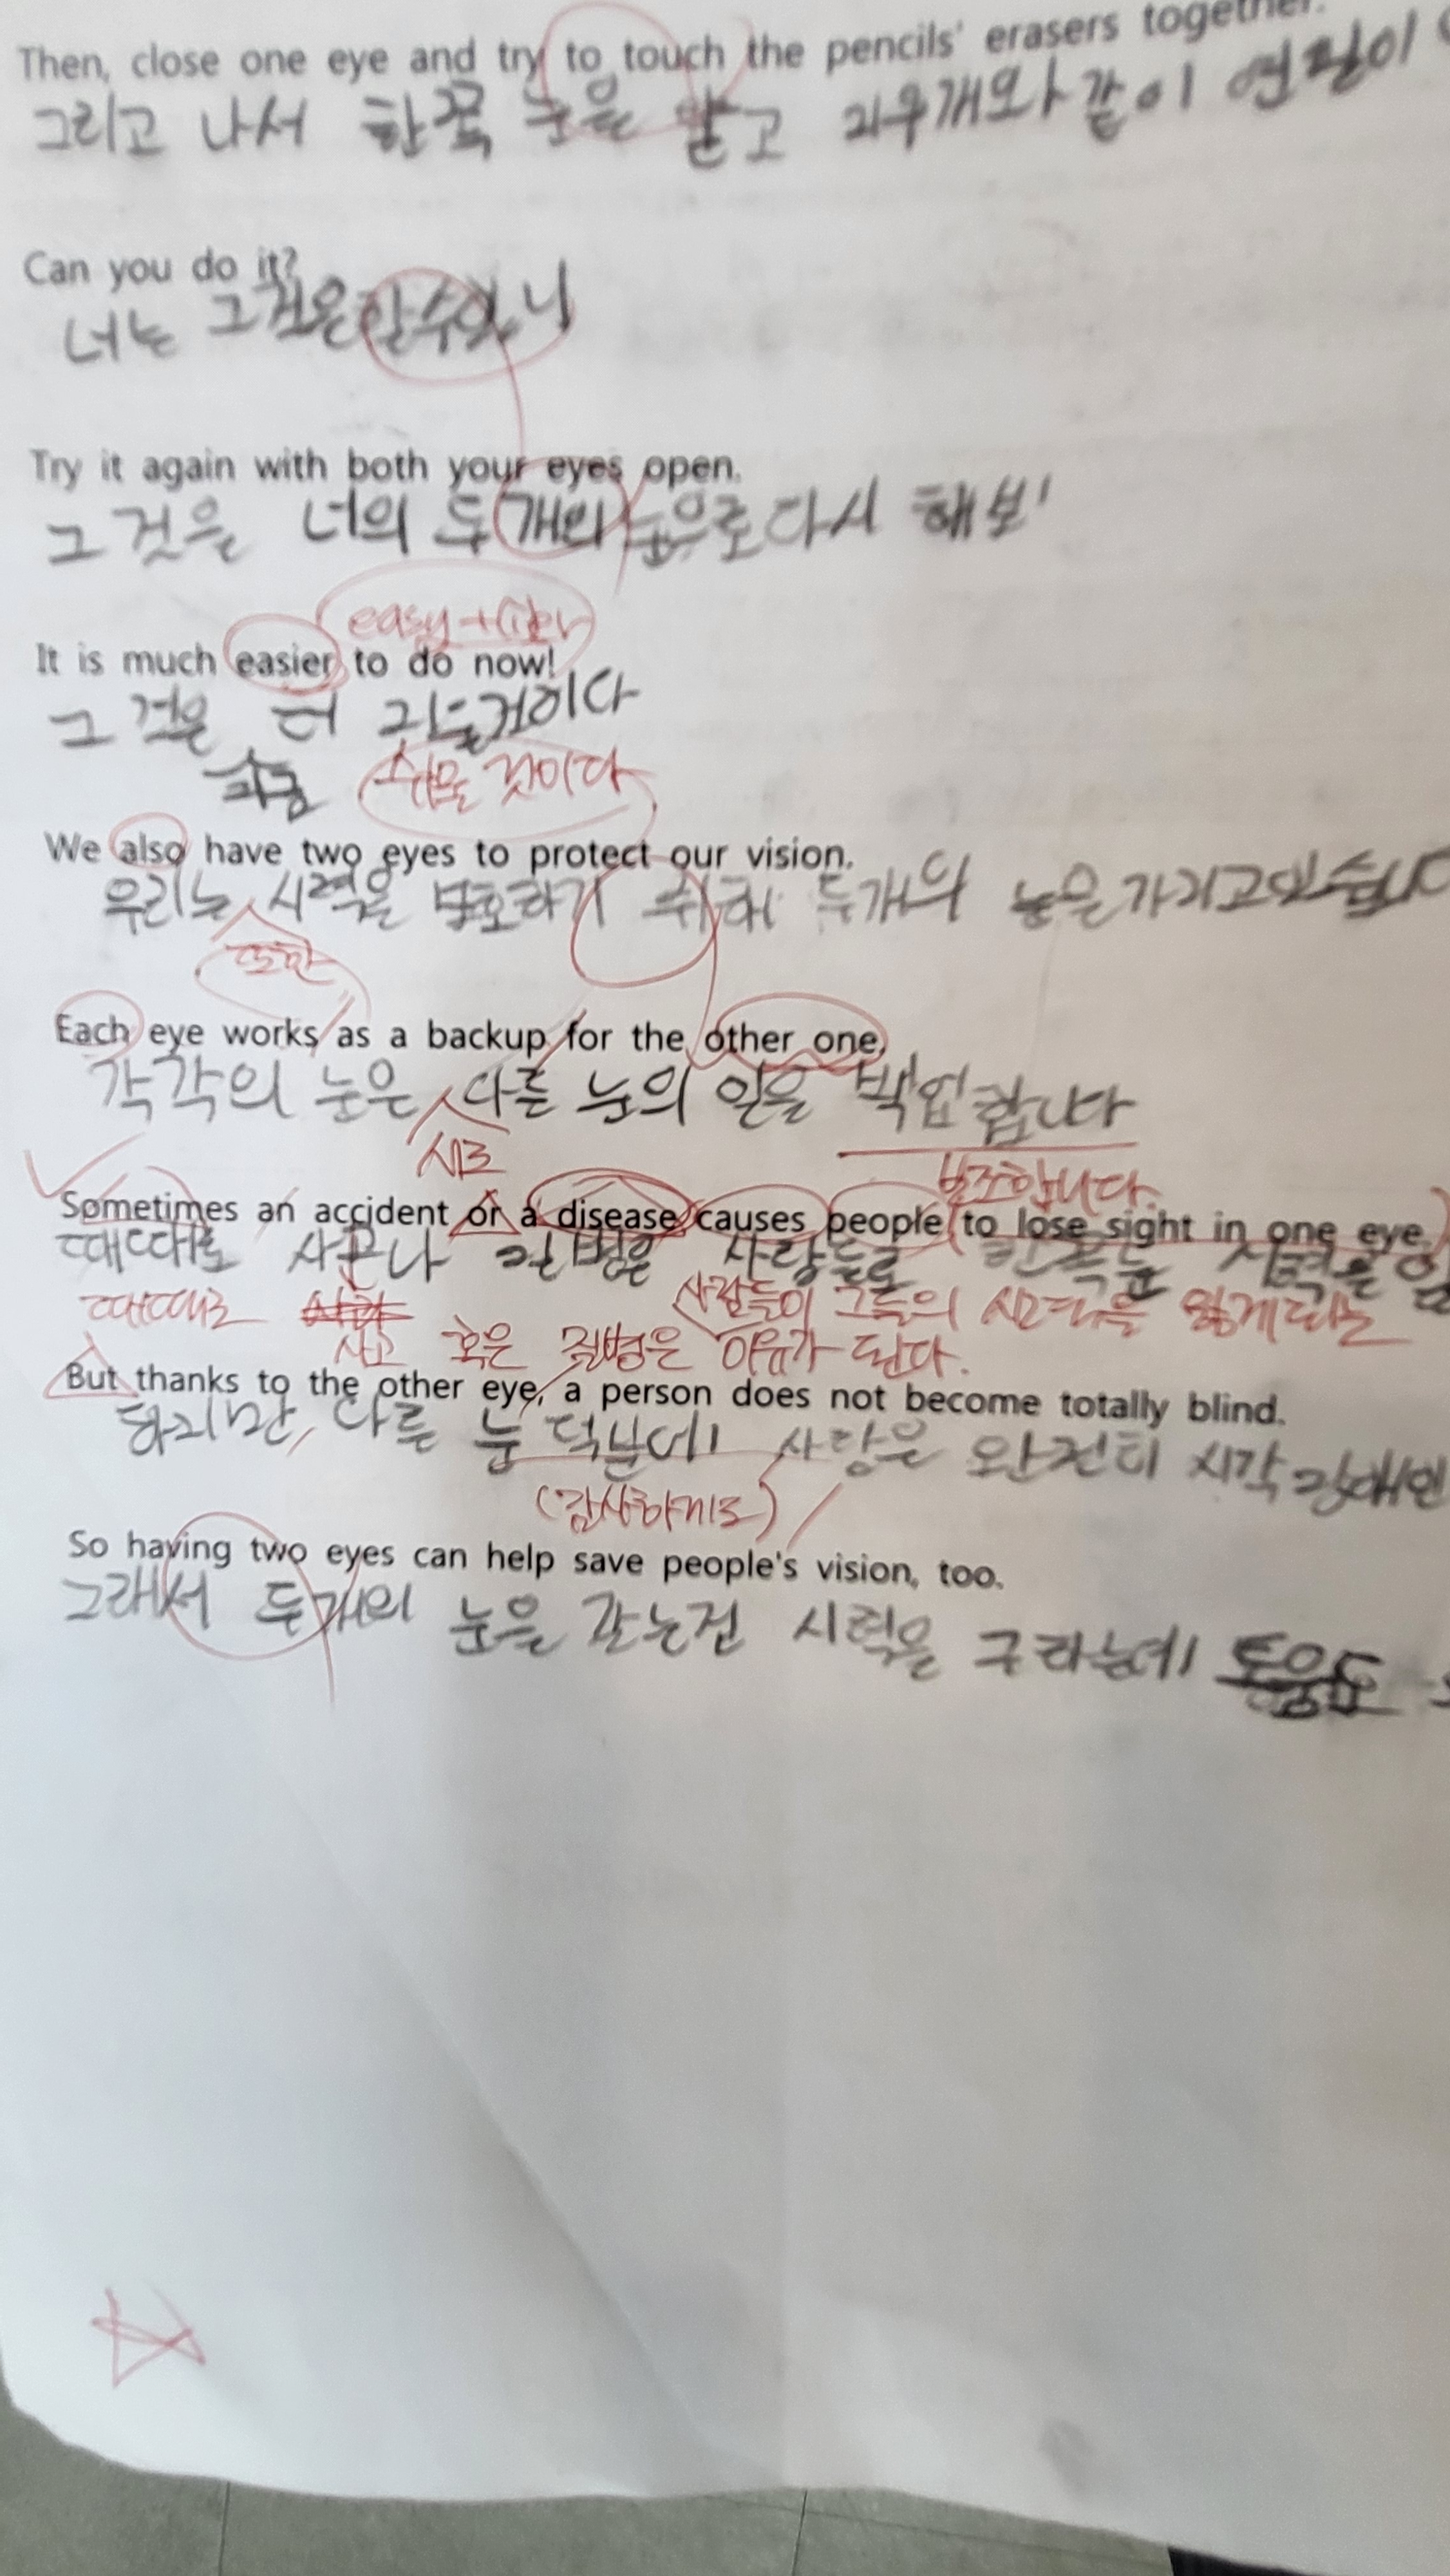 Then, close one eye and try to touch the pencils' erasers together.
그리고 나서 한쪽 눈을 감고 지우개와 같이 연필이
Can you do it?
너는 그것을 할수있니
Try it again with both your eyes open.
그것을 너의 두개의 눈으로 다시 해보
easy +
It is much easier to do now!
그것은 더
쉬울 것이다
We also have two eyes to protect our vision.
우리는 시력을 보호하기 위해 두개의 눈을 가지고있습니다
또한
Each eye works as a backup for the other one.
각각의 눈은 다른 눈의 일을 백업합니다
서로
보조합니다.
Sometimes an accident or a disease causes people to lose sight in one eye.
때때로 사고나 병은 사람들을 한쪽눈 시력을
때때로 사람들이 그들의 시력을 잃게되는
사고 혹은 질병은 이유가 된다.
But thanks to the other eye, a person does not become totally blind.
하지만, 다른 눈 덕분에 사람은 완전히 시각 장애인
(감사하게도)
So having two eyes can help save people's vision, too.
그래서 두개의 눈을 갖는건 시력을 구하는데